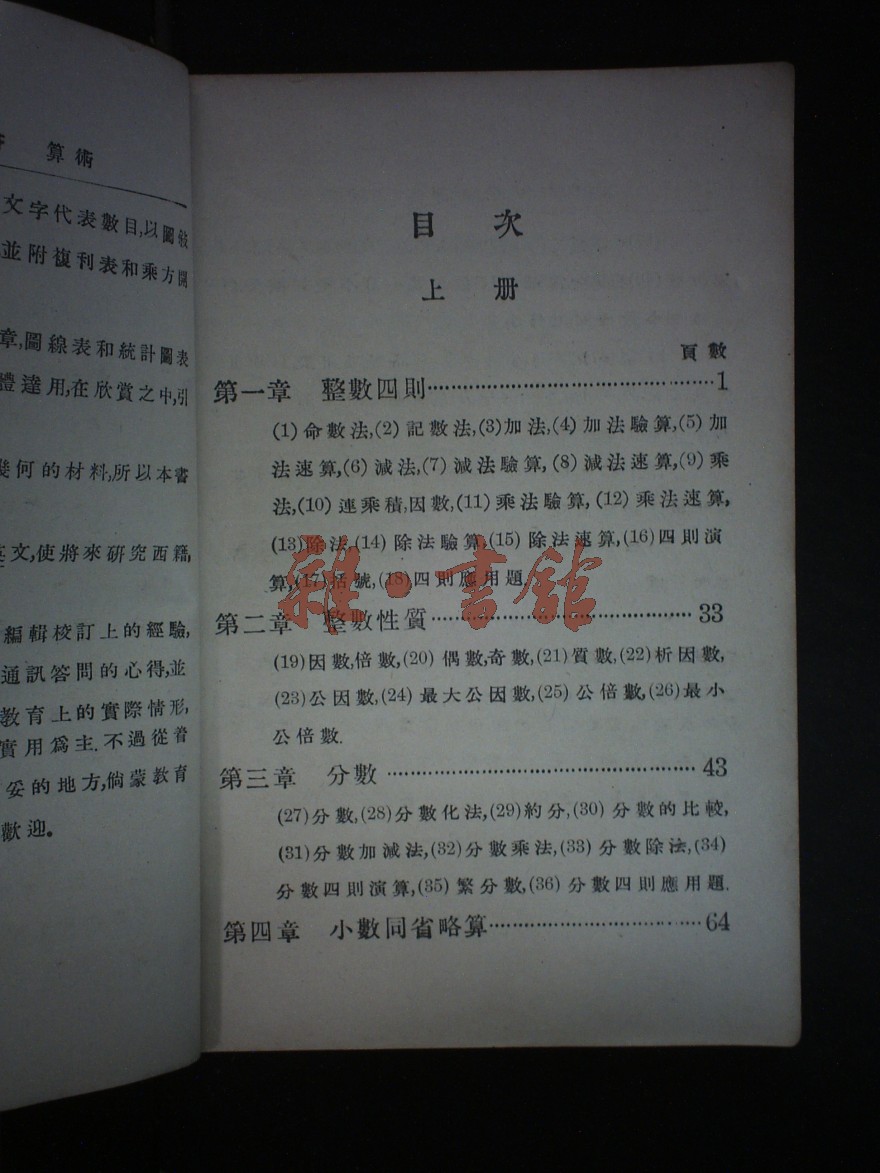 算術
文字代表數目,以圖
並附複利表和乘方開
章,圖線表和統計圖表
體達用,在欣賞之中,引
幾何的材料,所以本書
英文,使將來研究西籍,
編輯校訂上的經驗,
通訊答問的心得,並
教育上的實際情形,
實用爲主.不過從
妥的地方,倘蒙教育
歡迎。
目次
上册
頁數
第一章 整數四則……1
(1)命數法,(2)記數法,(3)加法,(4)加法驗算,(5)加
法速算,(6)減法,(7)減法驗算,(8)減法速算,(9)乘
法,(10)連乘積,因數,(11)乘法驗算,(12)乘法速算,
(13)除法,(14)除法驗算,(15)除法速算,(16)四則演
算,(17)括號,(18)四則應用題.
第二章 整數性質……33
(19)因數,倍數,(20)偶數,奇數,(21)質數,(22)析因數,
(23)公因數,(24)最大公因數,(25)公倍數,(26)最小
公倍數.
第三章 分數……43
(27)分數,(28)分數化法,(29)約分,(30)分數的比較,
(31)分數加減法,(32)分數乘法,(33)分數除法,(34)
分數四則演算,(35)繁分數,(36)分數四則應用題.
第四章 小數同省略算……64
雜·書館